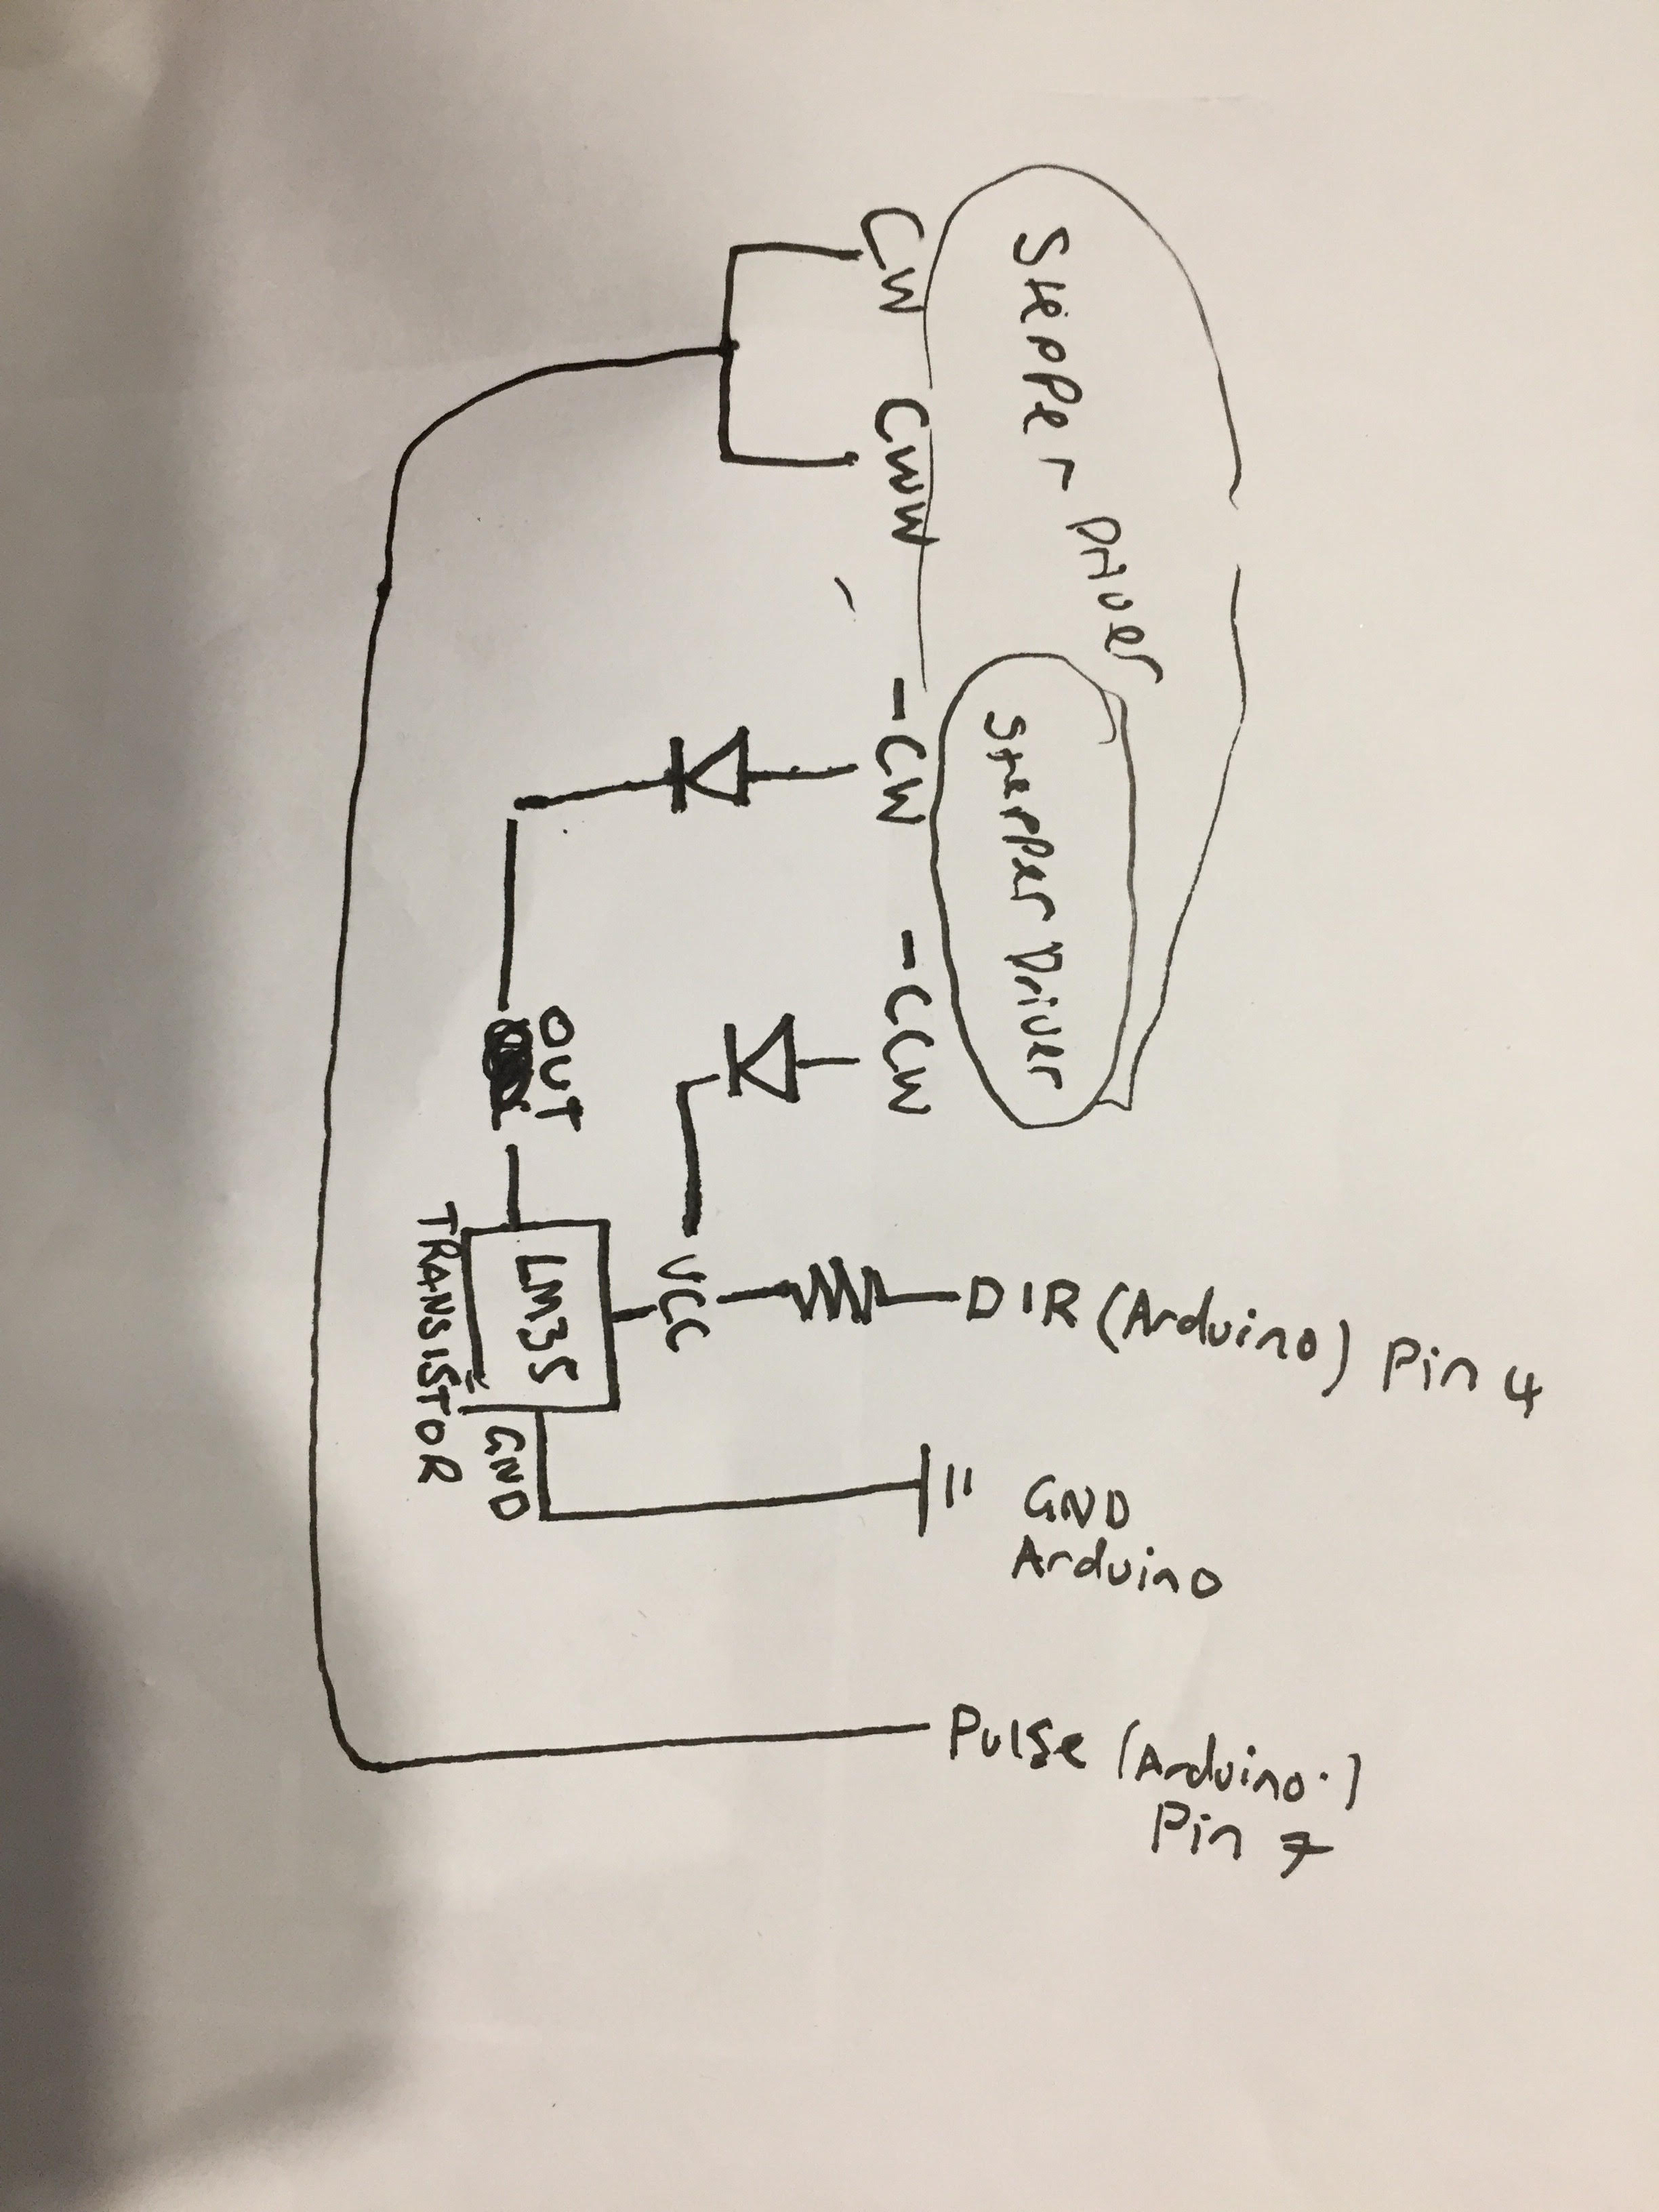 Stepper Driver
Stepper Driver
CW
CWW
-CW
-CCW
OUT
VCC
DIR (Arduino) Pin 4
LM35
TRANSISTOR
GND
GND
Arduino
Pulse (Arduino.)
Pin 7